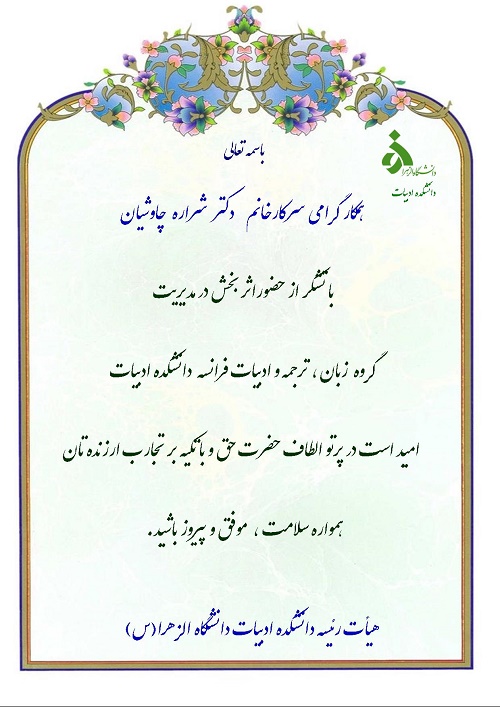 باسمه تعالی
دانشگاه الزهرا
دانشکده ادبیات
همکار گرامی سرکار خانم دکتر شراره چاوشیان
با تشکر از حضور اثر بخش در مدیریت
گروه زبان ، ترجمه و ادبیات فرانسه دانشکده ادبیات
امید است در پرتو الطاف حضرت حق و با تکیه بر تجارب ارزنده تان
همواره سلامت ، موفق و پیروز باشید.
هیأت رئیسه دانشکده ادبیات دانشگاه الزهرا (س)